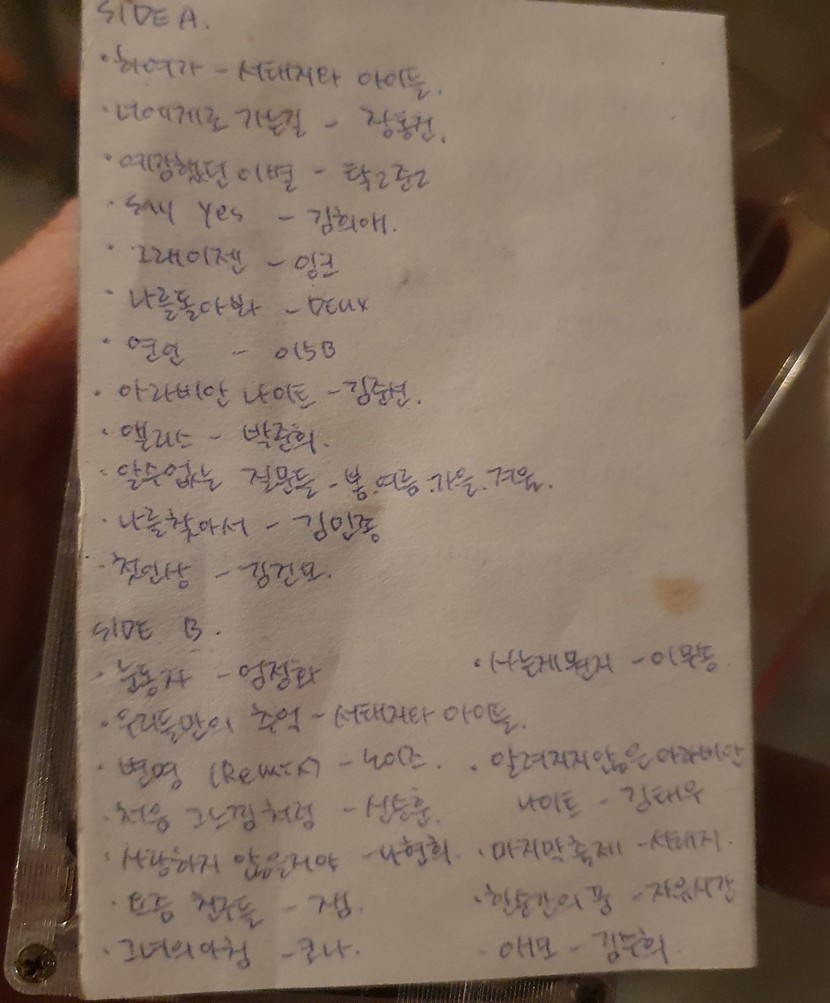 SIDE A.
· 하여가 - 서태지와 아이들.
· 너에게로 가는길 - 장동건.
· 예감했던 이별 - 탁2준2
· Say Yes - 김희애.
· 그래이젠 - 잉크
· 나를돌아봐 - DEUX
· 연인 - 015B
· 아라비안 나이트 - 김준선.
· 앨리스 - 박준희.
· 알수없는 질문들 - 봄.여름.가을.겨울.
· 나를찾아서 - 김민종
· 첫인상 - 김건모.
SIDE B.
· 눈동자 - 엄정화
· 우리들만의 추억 - 서태지와 아이들.
· 변명 (Remix) - 노이즈.
· 처음 그느낌처럼 - 신승훈.
· 사랑하지 않을거야 - 나현희.
· 요즘 친구들 - 잼.
· 그녀의아침 - 코나.
· 사는게뭔지 - 이무송
· 알려지지않은아라비안
나이트 - 김태우
· 마지막축제 - 서태지.
· 한순간의 꿈 - 자유시간
- 애모 - 김수희